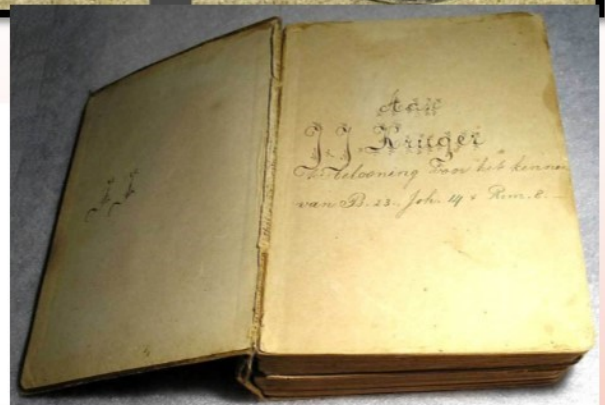 J. J.
Aan
J. J. Kruger
belooning voor het kennen
van Ps. 23, Joh. 14 & Rom. 8.